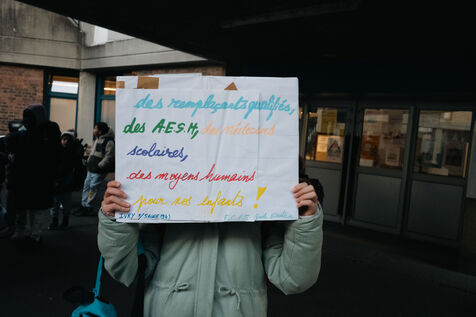 des remplaçants qualifiés,
des A.E.S.H, des médecins
scolaires,
des moyens humains
pour nos enfants !
IVRY S/SEINE (94)